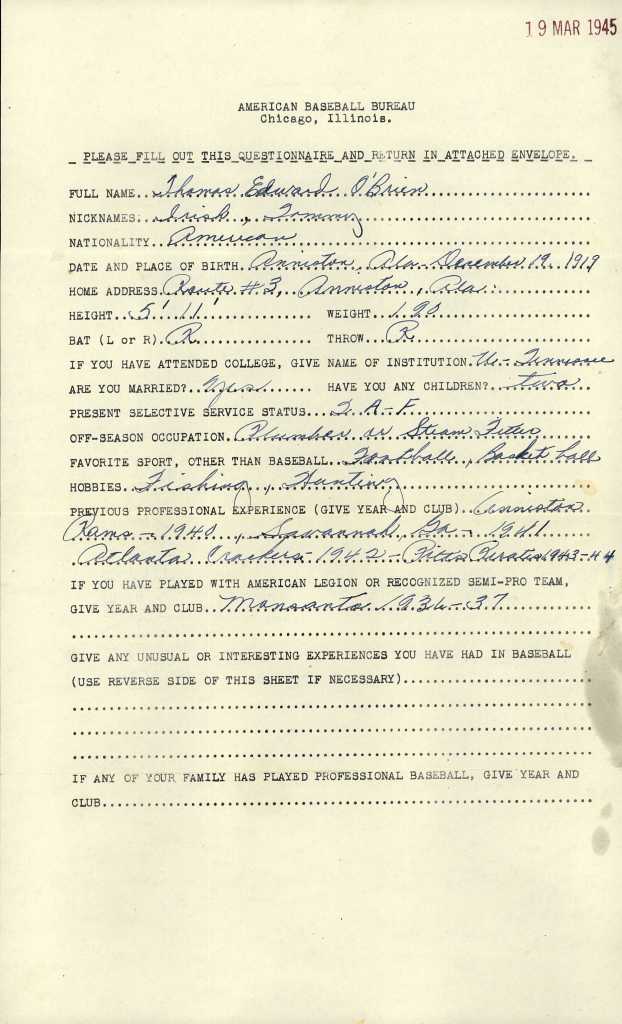 19 MAR 1945
AMERICAN BASEBALL BUREAU
Chicago, Illinois.
PLEASE FILL OUT THIS QUESTIONNAIRE AND RETURN IN ATTACHED ENVELOPE.
FULL NAME..Thomas Edward O'Brien
NICKNAMES..Irish, Tommy
NATIONALITY..American
DATE AND PLACE OF BIRTH.Anniston, Ala- December 19. 1919
HOME ADDRESS.Route #3, Anniston, Ala.
HEIGHT..5' 11' WEIGHT..190
BAT (L or R).R THROW..R
IF YOU HAVE ATTENDED COLLEGE, GIVE NAME OF INSTITUTION.U.- Tennessee
ARE YOU MARRIED?..Yes HAVE YOU ANY CHILDREN?..two
PRESENT SELECTIVE SERVICE STATUS...2.A-F
OFF-SEASON OCCUPATION.Plumber or Steam Fiter
FAVORITE SPORT, OTHER THAN BASEBALL..Football, Basket ball
HOBBIES.Fishing, Hunting
PREVIOUS PROFESSIONAL EXPERIENCE (GIVE YEAR AND CLUB)..Anniston
Rams-1940, Savannah, Ga-1941
Atlanta Crackers-1942-Pitts Pirates 1943-44
IF YOU HAVE PLAYED WITH AMERICAN LEGION OR RECOGNIZED SEMI-PRO TEAM,
GIVE YEAR AND CLUB..Monsanto 1936-37
GIVE ANY UNUSUAL OR INTERESTING EXPERIENCES YOU HAVE HAD IN BASEBALL
(USE REVERSE SIDE OF THIS SHEET IF NECESSARY)
IF ANY OF YOUR FAMILY HAS PLAYED PROFESSIONAL BASEBALL, GIVE YEAR AND
CLUB